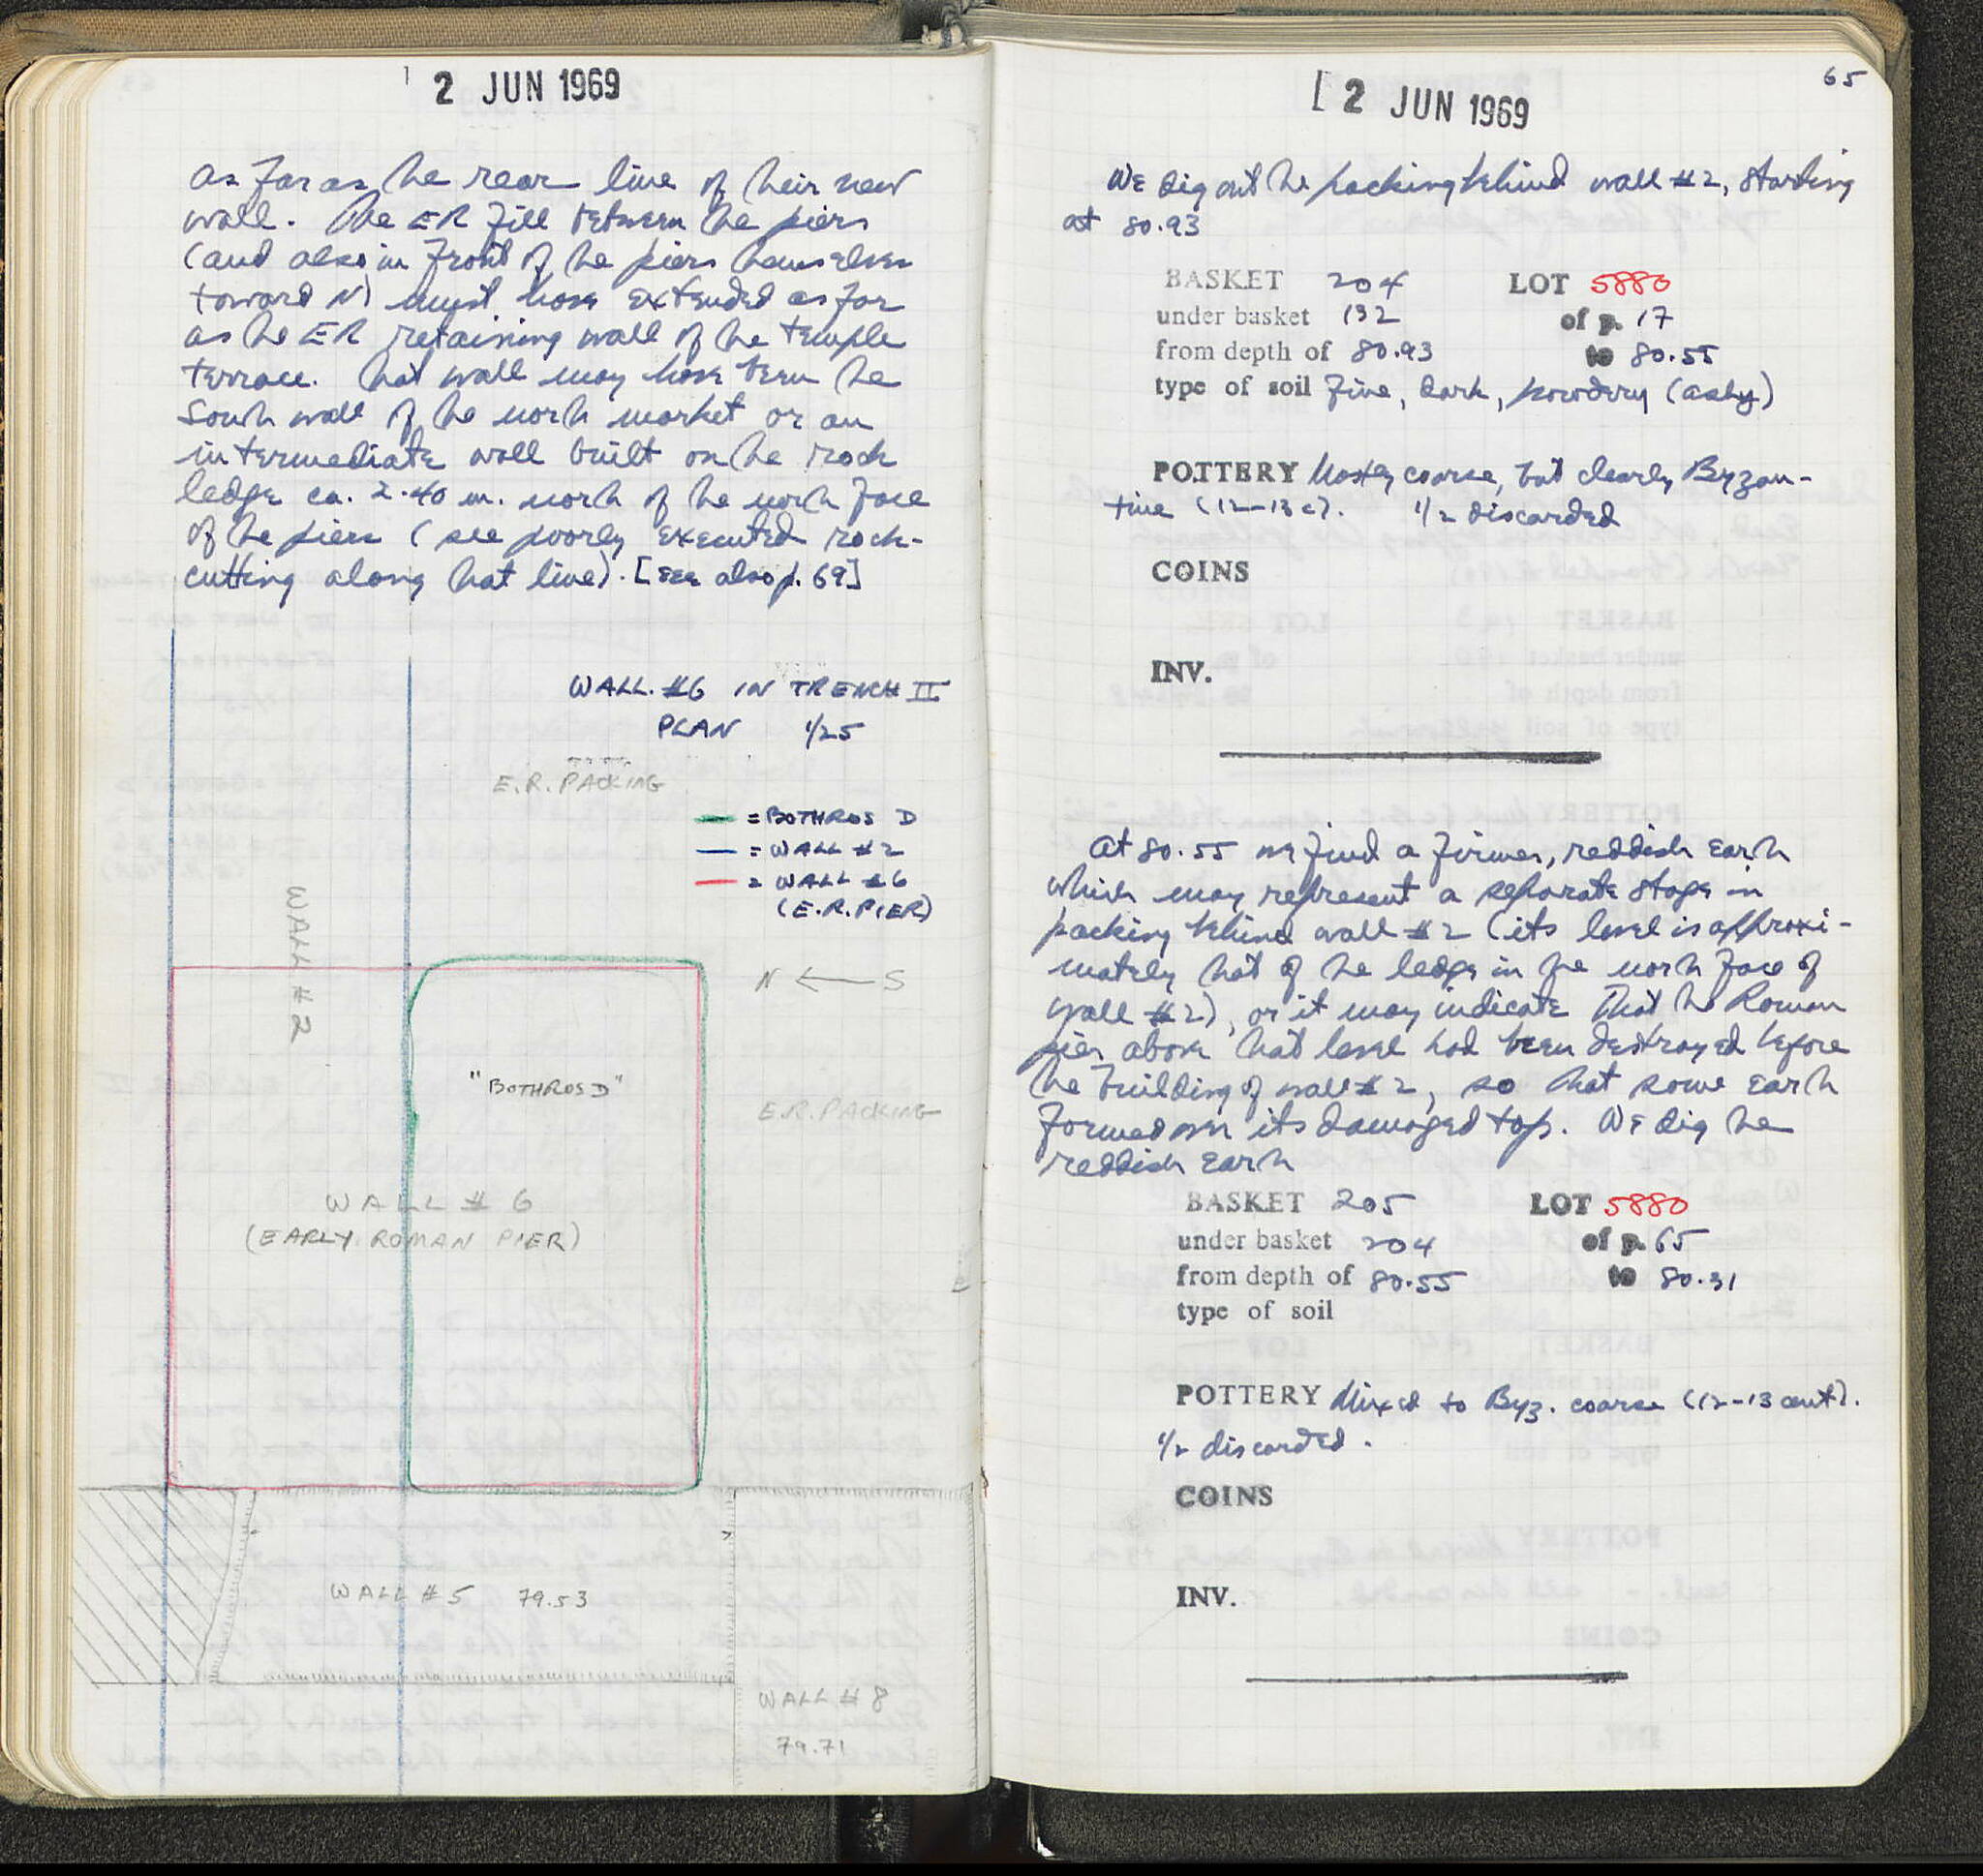 2 JUN 1969
as far as the rear line of their new
wall. The ER fill between the piers
(and also in front of the piers themselves
toward N) must have extended as far
as the ER retaining wall of the temple
terrace. That wall may have been the
south wall of the north market or an
intermediate wall built on the rock
ledge ca. 2.40 m. north of the north face
of the piers (see poorly executed rock-
cutting along that line). [see also p. 69]
WALL #6 IN TRENCH II
PLAN 1/25
E.R. PACKING
= BOTHROS D
= WALL #2
= WALL #6
(E.R. PIER)
WALL #2
N ← S
"BOTHROS D"
E.R. PACKING
WALL # 6
(EARLY ROMAN PIER)
WALL #5 79.53
WALL #8
79.71
65
[2 JUN 1969
We dig out the packing behind wall #2, starting
at 80.93
BASKET 204 LOT 5880
under basket 132 of p. 17
from depth of 80.93 to 80.55
type of soil Fine, dark, powdery (ashy)
POTTERY Mostly coarse, but clearly Byzan-
tine (12-13 c). 1/2 discarded
COINS
INV.
At 80.55 we find a firmer, reddish earth
which may represent a separate stage in
packing behind wall #2 (its level is approxi-
mately that of the ledge in the north face of
wall #2), or it may indicate that the Roman
pier above that level had been destroyed before
the building of wall #2, so that some earth
formed on its damaged top. We dig the
reddish earth
BASKET 205 LOT 5880
under basket 204 of p. 65
from depth of 80.55 to 80.31
type of soil
POTTERY Mixed to Byz. coarse (12-13 cent).
1/2 discarded.
COINS
INV.